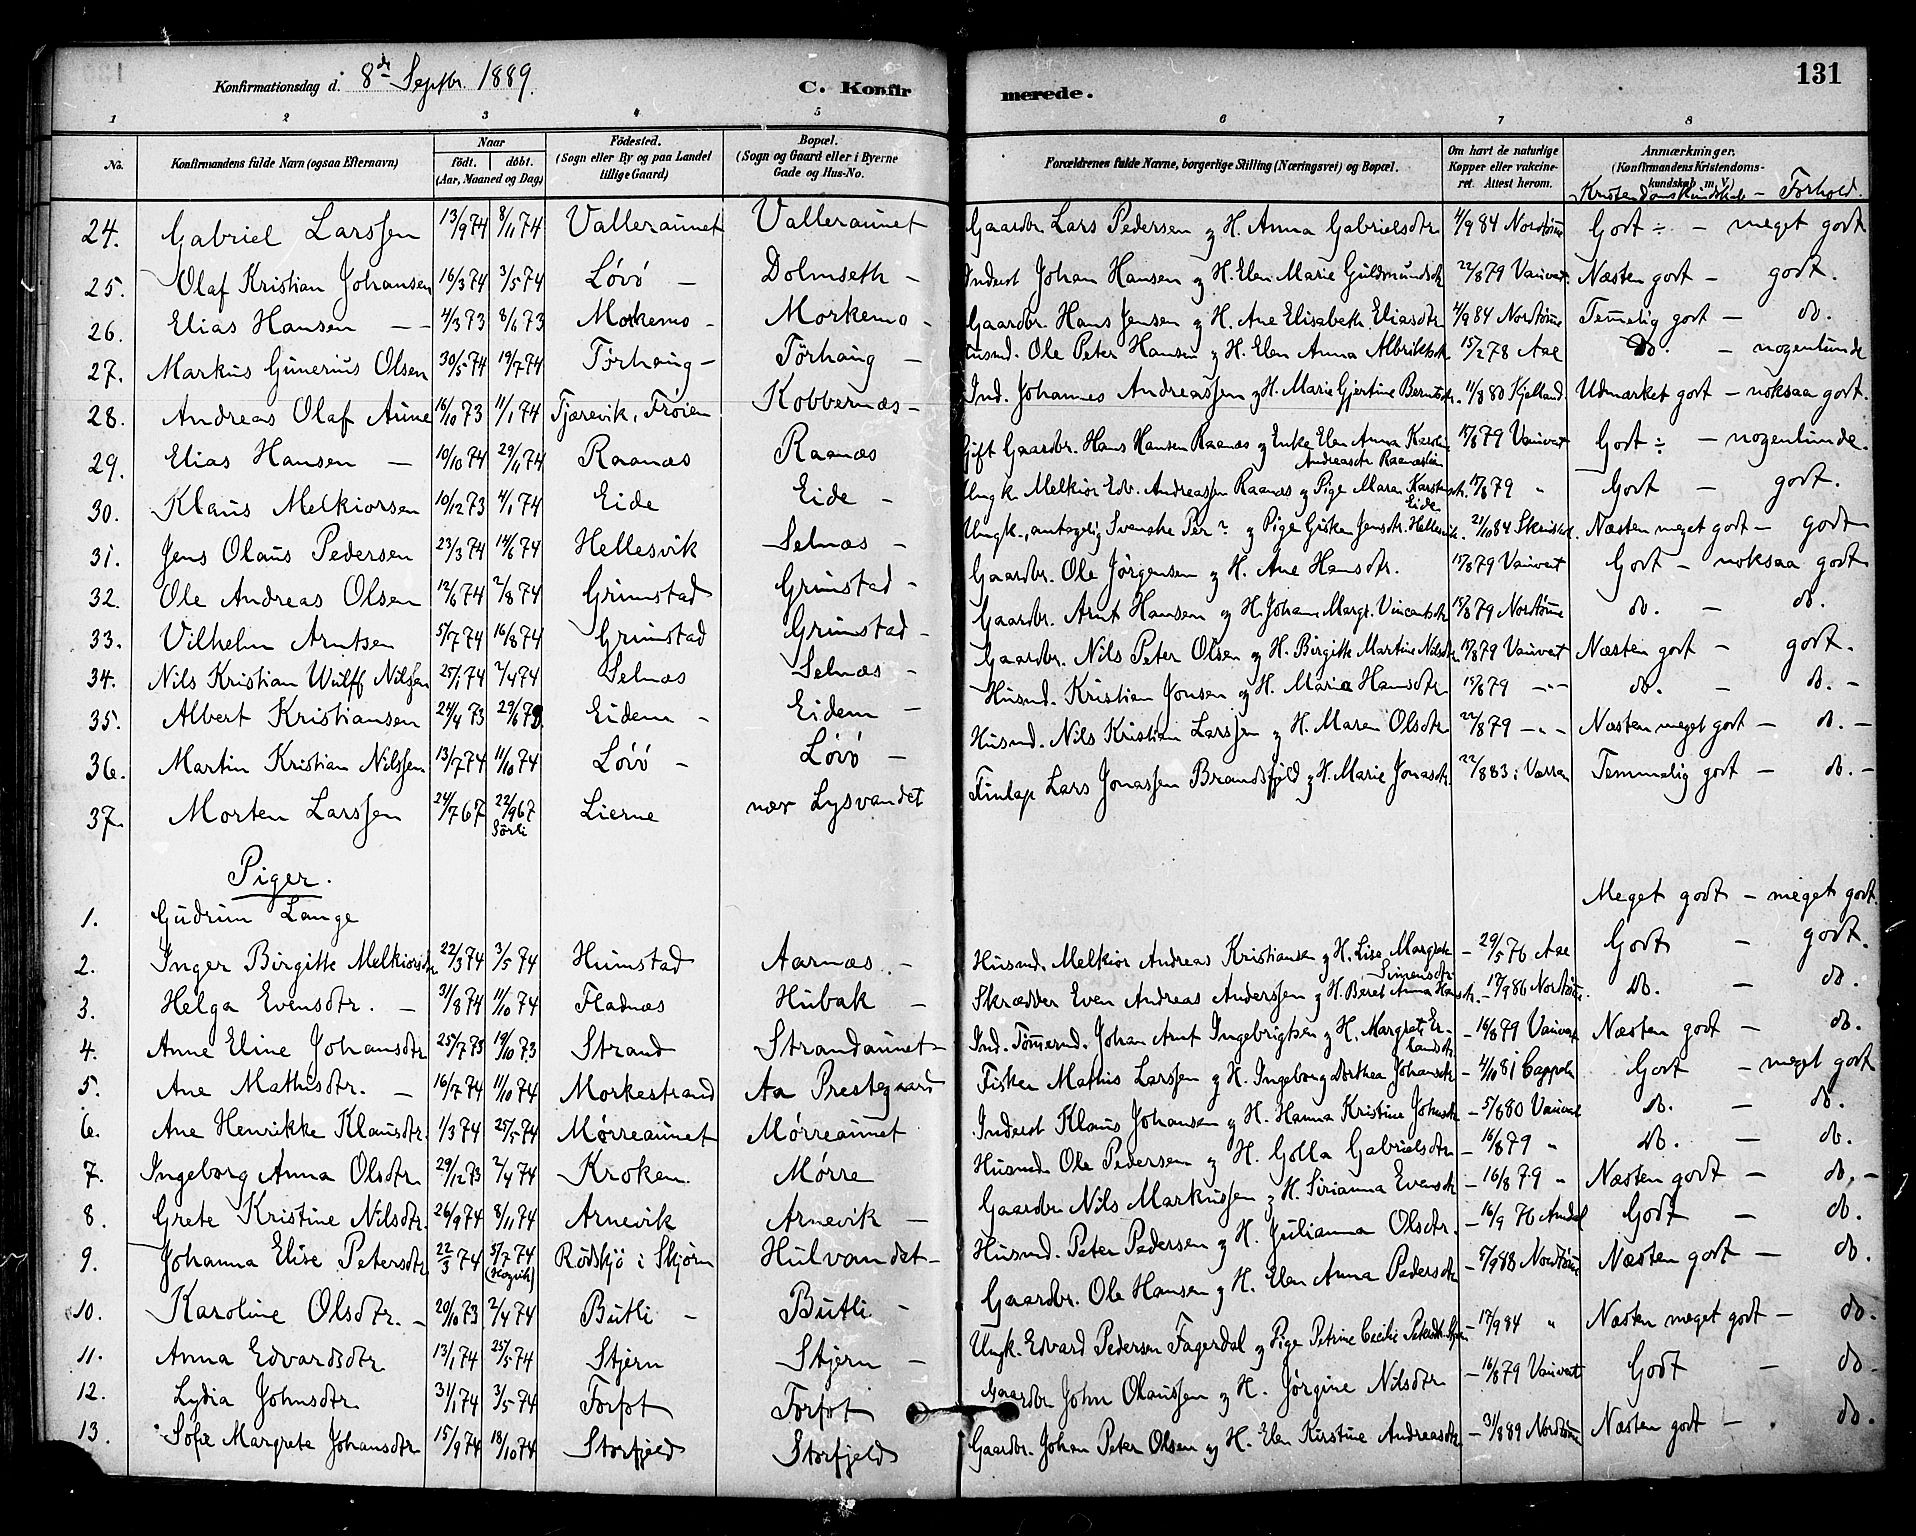 131
Konfirmationsdag d. 8de Septbr. 1889.
C. Konfirmerede.
1 2 3 4 5 6 7 8
No. Konfirmandens fulde Navn (ogsaa Efternavn) Naar født. døbt. (Aar, Maaned og Dag) Fødested. (Sogn eller By og paa Landet tillige Gaard) Bopæl. (Sogn og Gaard eller i Byerne Gade og Hus-No. Forældrenes fulde Navne, borgerlige Stilling (Næringsvei) og Bopæl. Om havt de naturlige Kopper eller vakcineret. Attest herom. Anmærkninger. (Konfirmandens Kristendomskundskab m. V.)
Kristendomskundskab - Forhold.
24. Gabriel Larssen 13/9 74 8/11 74 Valleraunet Valleraunet Gaardbr. Lars Pedersen og H. Anna Gabrielsdtr 4/9 84 Godt ÷ - meget godt
25. Olaf Kristian Johansen 16/3 74 3/5 74 Løvö - Dolmseth - Inderst Johan Hansen og H. Elen Marie Guldmundsdtr 22/8 79 Næsten godt - godt.
26. Elias Hansen - - 4/3 73 8/6 73 Morkemo - Morkemo - Gaardbr. Hans Jensen og H. Ane Elisabeth Eliasdtr 4/9 84 Temmelig godt - do.
27. Markus Gunerius Olsen 30/5 74 19/7 74 Tørhaug - Tørhaug - Husmd. Ole Peter Hansen og H. Elen Anna Albriktsdtr. 15/2 78 Aae do. - nogenlunde
28. Andreas Olaf Aune 16/10 73 11/1 74 Tjærevik, Frøien Kobbernæs - Ind. Johannes Andreassen og H. Marie Gjertine Berntsdtr. 11/8 80 Kjelland. Udmærket godt - noksaa godt.
29. Elias Hansen - 10/10 74 29/11 74 Raanæs Raanæs Gift Gaardbr. Hans Hansen Raanæs og Enke Elen Anna Karoline Andreasdtr 15/8 79 Godt ÷ - nogenlunde.
30. Klaus Melkiorsen 10/12 73 4/1 74 Eide Eide - Ungk. Melkior Edv. Andreassen Raanæs og Pige Maren Karstensdtr. Eide 15/8 79 " Godt - godt.
31. Jens Olaus Pedersen 23/3 74 14/6 74 Hellesvik Selnæs - Ungk., antagelig Svenske Per? og Pige Gisken Jensdtr. Hellesvik. 21/10 84 Næsten meget godt - godt
32. Ole Andreas Olsen 12/6 74 2/8 74 Grimstad Grimstad - Gaardbr. Ole Jørgensen og H. Ane Hansdtr. 15/8 79 Godt - noksaa godt
33. Vilhelm Arntsen 5/7 74 16/8 74 Grimstad Grimstad - Gaardbr. Arnt Hansen og H. Johan. Margr. Vincentsdtr 15/8 79 do. - do.
34. Nils Kristian Wulff Nilssen 25/1 74 2/4 74 Selnæs Selnæs - Gaardbr. Nils Peter Olsen og H. Birgitte Martine Nilsdtr. 15/8 79 Næsten godt - godt.
35. Albert Kristiansen 24/4 73 29/6 73 Eidem - Eidem - Husmd. Kristian Jonsen og H. Maria Hansdtr 15/8 79 -"- do. - do. -
36. Martin Kristian Nilssen 13/7 74 11/10 74 Løvö - Løvö - Husmd. Nils Kristian Larssen og H. Maren Olsdtr 22/8 79 -"- Næsten meget godt - do. -
37. Morten Larssen 24/7 67 22/9 67 Sørli Lierne nær Lysvandet Finlap Lars Jonassen Brandsfjeld og H. Marie Jonasdtr 22/8 83 i Værran Temmelig godt - do. -
Piger.
1. Gudrun Lange Meget godt - meget godt.
2. Inger Birgitte Melkiorsdtr 22/3 74 3/5 74 Humstad Aarnæs. - Husmd. Melkior Andreas Kristiansen og H. Lise Margrete Simensdtr - 29/5 76 Aae Godt - godt.
3. Helga Evensdtr. - 31/8 74 11/10 74 Fladnæs Hubak - Skrædder Even Andreas Anderssen og H. Beret Anna Hansdtr. - 17/9 86 do. - do.
4. Anne Eline Johansdtr 25/7 73 19/10 73 Strand Strandaunet - Ind. Tømmermd. Johan Arnt Ingebrigtsen og H. Margrete Erlandsdtr - 16/8 79 Næsten godt - do.
5. Ane Mathisdtr. - 16/7 74 11/10 74 Morkestrand Aa Prestegaard Fisker Mathis Larssen og H. Ingeborg Dorthea Johansdtr - 4/10 81 Godt - meget godt
6. Ane Henrikke Klausdtr. 1/3 74 25/5 74 Mørreaunet Mørreaunet Inderst Klaus Johansen og H. Hanna Kristine Johnsdtr - 5/8 80 do. - do.
7. Ingeborg Anna Olsdtr 29/12 73 2/4 74 Kroken. Mørre Husmd. Ole Pedersen og H. Golla Gabrielsdtr - 16/8 79 " do. - do.
8. Grete Kristine Nilsdtr. 26/9 74 8/11 74 Arnevik Arnevik - Gaardbr Nils Markussen og H. Sirianna Evensdtr - 16/8 79 " Næsten godt - do. -
9. Johanna Elise Petersdtr 22/3 74 5/7 74 Rödsjö i Skjørn Hulvandet - Husmd. Peter Pedersen og H. Julianna Olsdtr. - 16/9 76 Godt - do.
10. Karoline Olsdtr. - 20/10 73 2/4 74 Butli - Butli - Gaardbr. Ole Hansen og H. Elen Anna Pedersdtr - 5/9 88 Næsten godt - do.
11. Anna Edvardsdtr 13/1 74 25/5 74 Stjern Stjern - Ungk. Edvard Pedersen Fagerdal og Pige Petrine Cecilie Petersdtr - 17/9 84 " Næsten meget godt - do.
12. Lydia Johnsdtr 31/1 74 3/5 74 Forfot Forfot Gaardbr John Olaussen og H. Jørgine Nilsdtr - 16/8 79 Godt - do -
13. Sofie Margrete Johansdtr 15/9 74 18/10 74 Storfjeld Storfjeld Gaardbr. Johan Peter Olsen og H. Elen Kirstine Andreasdtr - 31/8 89 Næsten godt - do.